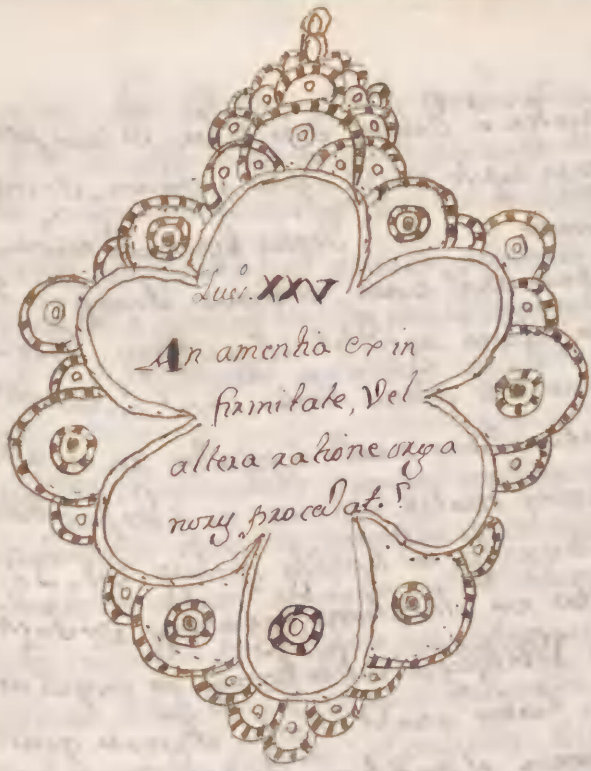 Quęs. XXV
An amentia ex in
firmitate, Vel
altera ratione orga
norũ procedat.?